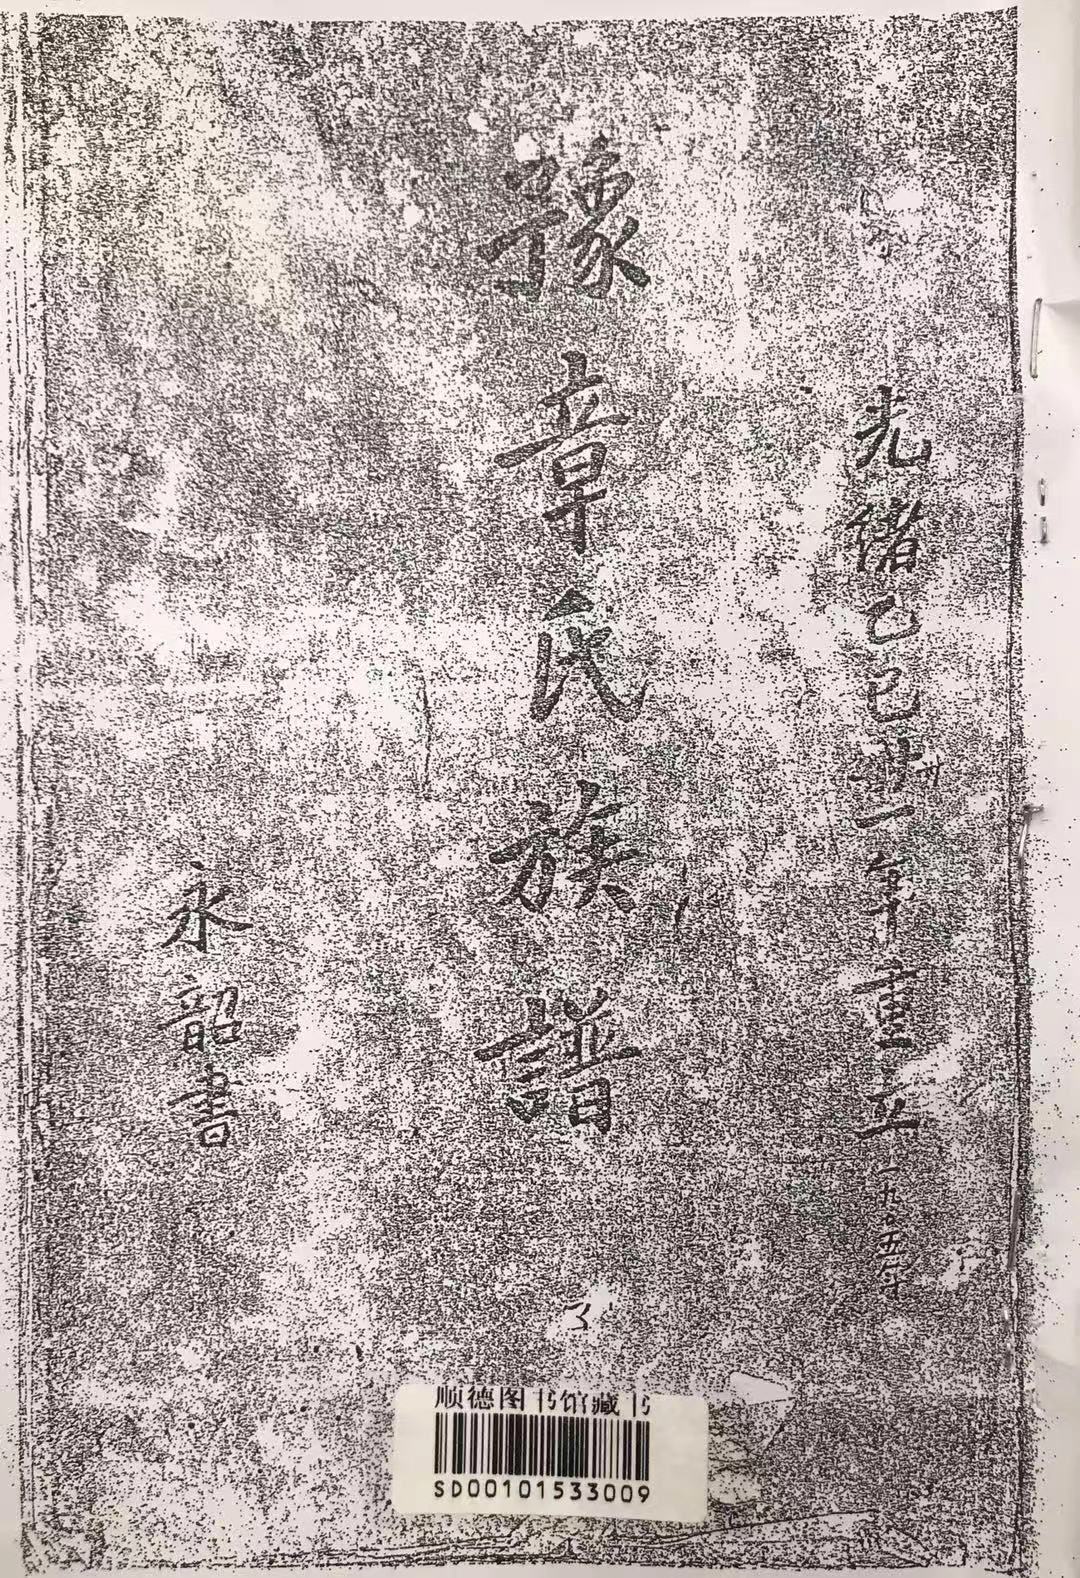 光緒乙巳卅一年重五一九〇五年
豫章氏族譜
永韶書
顺德图书馆藏书
SD00101533009